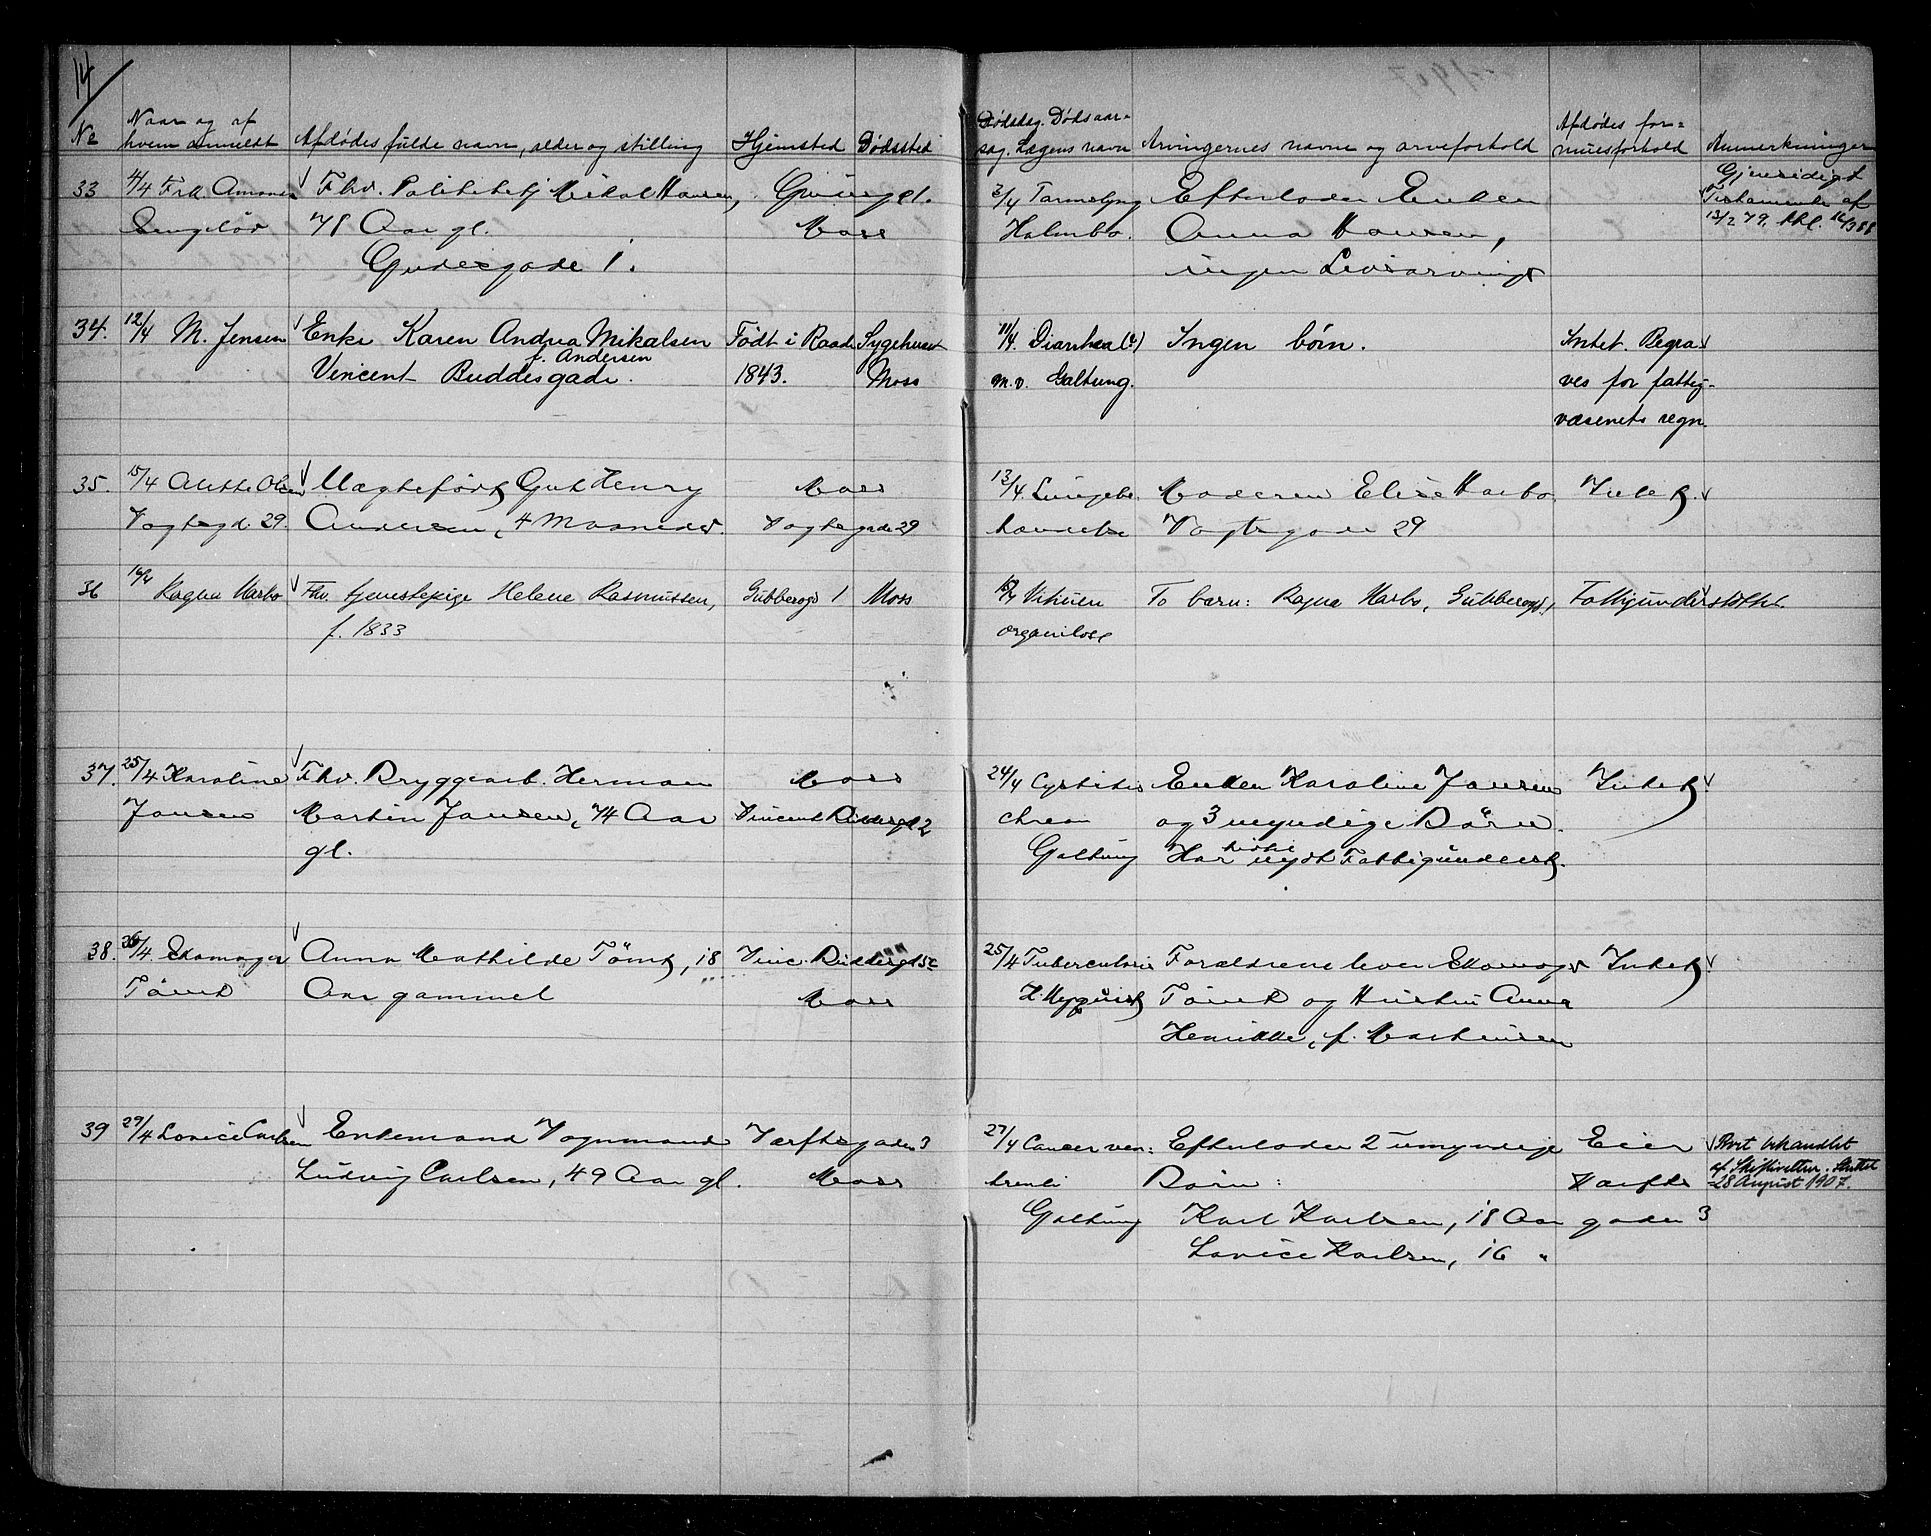 14
No
Naar og af
hvem anmeldt
Afdødes fulde navn, alder og stilling
Hjemsted
Dødssted
Dødsdag. Dødsaar-
sag. Lægens navn
Arvingernes navne og arveforhold
Afdødes for-
muesforhold
Anmerkninger
33
4/4 Frk. Amanda
Fhv. Politibetj Mikal Hansen,
78 Aar gl.
Gudesgade 1.
Moss
3/4
Holmbo.
Efterlader Enken
Anna Hansen,
ingen Livsarving
Gjensidigt
Testamente af
13/2 79,
34.
12/4 M. Jensen
Enke Karen Andrea Mikalsen
f. Andersen
Vincent Buddesgade.
Født i Raade
1843.
Sygehuset
Moss
11/4. Diarrhea (?)
m.v. Galtung.
Ingen børn.
Intet. Begra-
ves for fattig-
væsenets regn.
35.
15/4 Alette Olsen
Vogtsgd. 29.
Uægtefødt Gut Henry
Andersen, 4 Maaneder.
Moss
Vogtsgade 29
13/4. Lungebe-
tændelse
Moderen Elise Harbo
Vogtsgade 29
Intet.
36
16/4 Ragna Harbo
Fhv. tjenestepige Helene Rasmussen,
f. 1833
Gubberogd 1
Moss
Vitium
organ.
To barn: Ragna Harbo, Gubberogd 1
Fattigunderstøttet.
37.
25/4 Karoline
Jansen
Fhv. Bryggearb. Herman
Martin Jansen, 74 Aar
gl.
Moss
Vincent Buddesgd 2
24/4 Cystitis
chron
Galtung
Enken Karoline Jansen
og 3 myndige Børn.
Har ikke nydt Fattigunderst.
Intet
38.
26/4 Skomager
Anna Mathilde 18
Aar gammel
Vinc. Buddesgd 5c
Moss
25/4 Tuberculosis
H. Nyquist
Forældrene lever Skomager
og Hustru Anna
Henrikke, f. Martinsen
Intet
39
29/4 Lovice Carlsen
Enkemand Vognmand
Ludvig Carlsen, 49 Aar gl.
Værftsgaden 3
Moss
27/4 Cancer ven-
triculi
Galtung
Efterlader 2 umyndige
Børn:
Karl Karlsen, 18 Aar
Lovice Karlsen, 16 "
Eier
Værfts
gaden 3
Boet behandlet
af Skifteretten. Sluttet
28 August 1907.